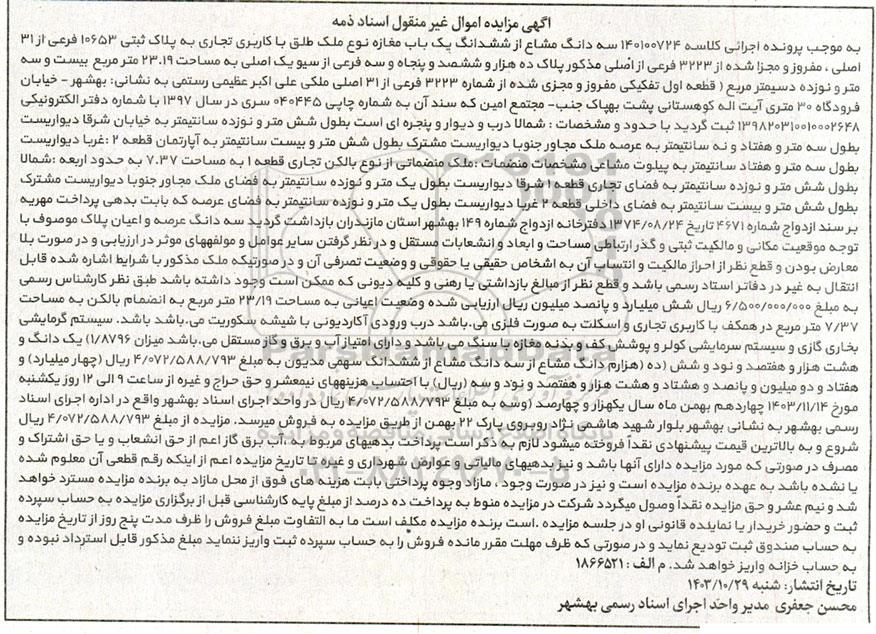 آگهی مزایده اموال غیر منقول اسناد ذمه
به موجب پرونده اجرائی کلاسه ۱۴۰۱۰۰۷۲۴ سه دانگ مشاع از ششدانگ یک باب مغازه نوع ملک طلق با کاربری تجاری به پلاک ثبتی ۱۰۶۵۳ فرعی از ۳۱
اصلی ، مفروز و مجزا شده از ۳۲۲۳ فرعی از اصلی مذکور پلاک ده هزار و ششصد و پنجاه و سه فرعی از سیو یک اصلی به مساحت ۲۳.۱۹ متر مربع بیست و سه
متر و نوزده دسیمتر مربع ( قطعه اول تفکیکی مفروز و مجزی شده از شماره ۳۲۲۳ فرعی از ۳۱ اصلی ملکی علی اکبر عظیمی رستمی به نشانی: بهشهر - خیابان
فرودگاه ۳۰ متری آیت اله کوهستانی پشت بهپاک جنب- مجتمع امین که سند آن به شماره چاپی ۰۴۰۴۴۵ سری د سال ۱۳۹۷ با شماره دفتر الکترونیکی
۱۳۹۸۲۰۳۱۰۰۱۰۰۰۲۶۴۸ ثبت گردید با حدود و مشخصات : شمالا درب و دیوار و پنجره ای است بطول شش متر و نوزده سانتیمتر به خیابان شرقا دیواریست
بطول سه متر و هفتاد و نه سانتیمتر به عرصه ملک مجاور جنوبا دیواریست مشترک بطول شش متر و بیست سانتیمتر به آپارتمان قطعه ۲ :غربا دیواریست
بطول سه متر و هفتاد سانتیمتر به پیلوت مشاعی . مشخصات منضمات :ملک منضماتی از نوع بالکن تجاری قطعه ۱ به مساحت ۷.۳۷ به حدود اربعه :شمالا
بطول شش متر و نوزده سانتیمتر به فضای تجاری قطعه ۱ شرقا دیواریست بطول یک متر و نوزده سانتیمتر به فضای ملک مجاور جنوبا دیواریست مشترک
بطول شش متر و بیست سانتیمتر به فضای داخلی قطعه ۲ غربا دیواریست بطول یک متر و نوزده سانتیمتر به فضای عرصه که بابت بدهی پرداخت مهریه
بر سند ازدواج شماره ۴۶۷۱ تاریخ ۱۳۷۴/۰۸/۲۴ دفترخانه ازدواج شماره ۱۴۹ بهشهر استان مازندران بازداشت گردید سه دانگ عرصه و اعیان پلاک موصوف با
توجه موقعیت مکانی و مالکیت ثبتی و گذر ارتباطی مساحت و ابعاد و انشعابات مستقل و در نظر گرفتن سایر عوامل و مولفههای موثر در ارزیابی و در صورت بلا
معارض بودن و قطع نظر از احراز مالکیت و انتساب آن به اشخاص حقیقی یا حقوقی و وضعیت تصرفی آن و در صورتیکه ملک مذکور با شرایط اشاره شده قابل
انتقال به غیر در دفاتر اسناد رسمی باشد و قطع نظر از مبالغ بازداشتی یا رهنی و کلیه دیونی که ممکن است وجود داشته باشد طبق نظر کارشناس رسمی
به مبلغ ۶/۵۰۰/۰۰۰/۰۰۰ ریال شش میلیارد و پانصد میلیون ریال ارزیابی شده وضعیت اعیانی به مساحت ۲۳/۱۹ متر مربع به انضمام بالکن به مساحت
۷/۳۷ متر مربع در همکف با کاربری تجاری و اسکلت به صورت فلزی می.باشد درب ورودی آکاردیونی با شیشه سکوریت می.باشد باشد. سیستم گرمایشی
بخاری گازی و سیستم سرمایشی کولر و پوشش کف و بدنه مغازه با سنگ می باشد و دارای امتیاز آب و برق و گاز مستقل می.باشد میزان (۱/۸۷۹۶) یک دانگ و
هشت هزار و هفتصد و نود و شش (ده (هزارم دانگ مشاع از سه دانگ مشاع از ششدانگ سهمی مدیون به مبلغ ۴/۰۷۲/۵۸۸/۷۹۳ ریال (چهار میلیارد) و
هفتاد و دو میلیون و پانصد و هشتاد و هشت هزار و هفتصد و نود و سه (ریال) با احتساب هزینههای نیمعشر و حق حراج و غیره از ساعت ۹ الی ۱۲ روز یکشنبه
مورخ ۱۴۰۳/۱۱/۱۴ چهاردهم بهمن ماه سال یکهزار و چهارصد (وسه به مبلغ ۴/۰۷۲/۵۸۸/۷۹۳ ریال در واحد اجرای اسناد بهشهر واقع در اداره اجرای اسناد
رسمی بهشهر به نشانی بهشهر بلوار شهید هاشمی نژاد روبروی پارک ۲۲ بهمن از طریق مزایده به فروش میرسد. مزایده از مبلغ ۴/۰۷۲/۵۸۸/۷۹۳ ریال
شروع و به بالاترین قیمت پیشنهادی نقداً فروخته میشود لازم به ذکر است پرداخت بدهیهای مربوط به .آب برق گاز اعم از حق انشعاب و یا حق اشتراک و
مصرف در صورتی که مورد مزایده دارای آنها باشد و نیز بدهیهای مالیاتی و عوارض شهرداری و غیره تا تاریخ مزایده اعم از اینکه رقم قطعی آن معلوم شده
یا نشده باشد به عهده برنده مزایده است و نیز در صورت وجود ، مازاد وجوه پرداختی بابت هزینه های فوق از محل مازاد به برنده مزایده مسترد خواهد
شد و نیم عشر و حق مزایده نقداً وصول میگردد شرکت در مزایده منوط به پرداخت ده درصد از مبلغ پایه کارشناسی قبل از برگزاری مزایده به حساب سپرده
ثبت و حضور خریدار یا نماینده قانونی او در جلسه مزایده .است برنده مزایده مکلف است ما به التفاوت مبلغ فروش را ظرف مدت پنج روز از تاریخ مزایده
به حساب صندوق ثبت تودیع نماید و در صورتی که ظرف مهلت مقرر مانده فروش را به حساب سپرده ثبت واریز ننماید مبلغ مذکور قابل استرداد نبوده و
به حساب خزانه واریز خواهد شد. م الف : ۱۸۶۶۵۲۱
تاریخ انتشار: شنبه ۱۴۰۳/۱۰/۲۹
محسن جعفری مدیر واحد اجرای اسناد رسمی بهشهر